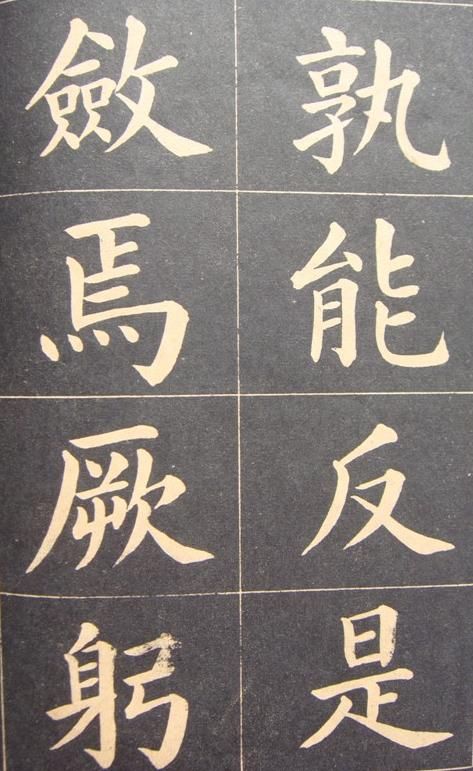 孰能反是
斂焉厥躬